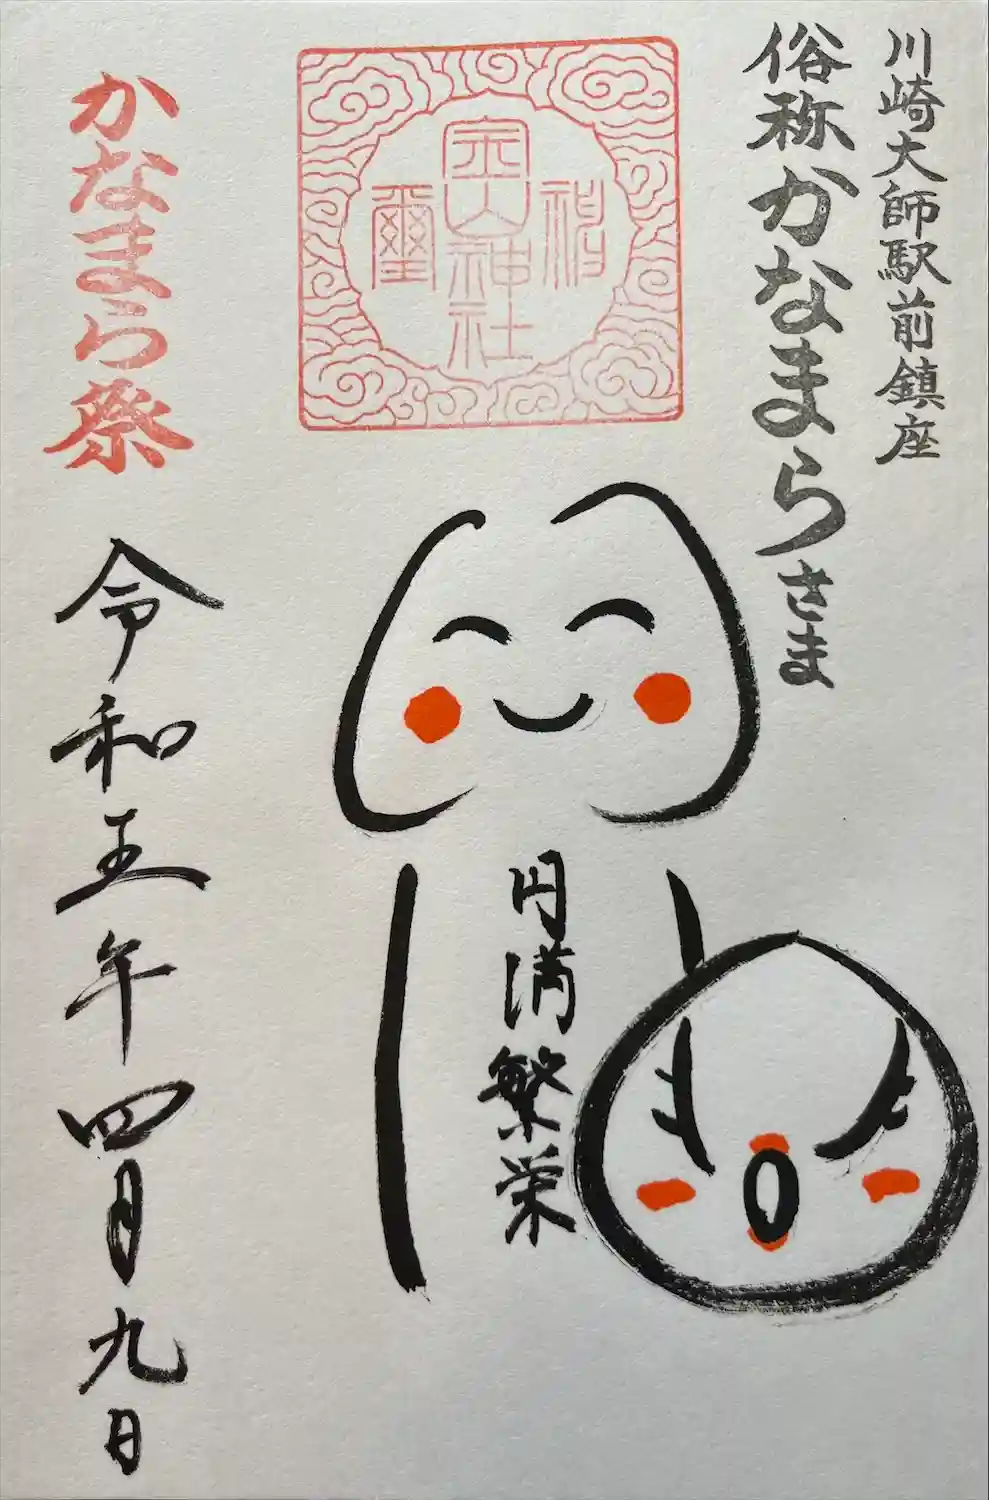 川崎大師駅前鎮座
俗称かなまらさま
金山神社
神璽
円満繁栄
かなまら祭
令和五年四月九日